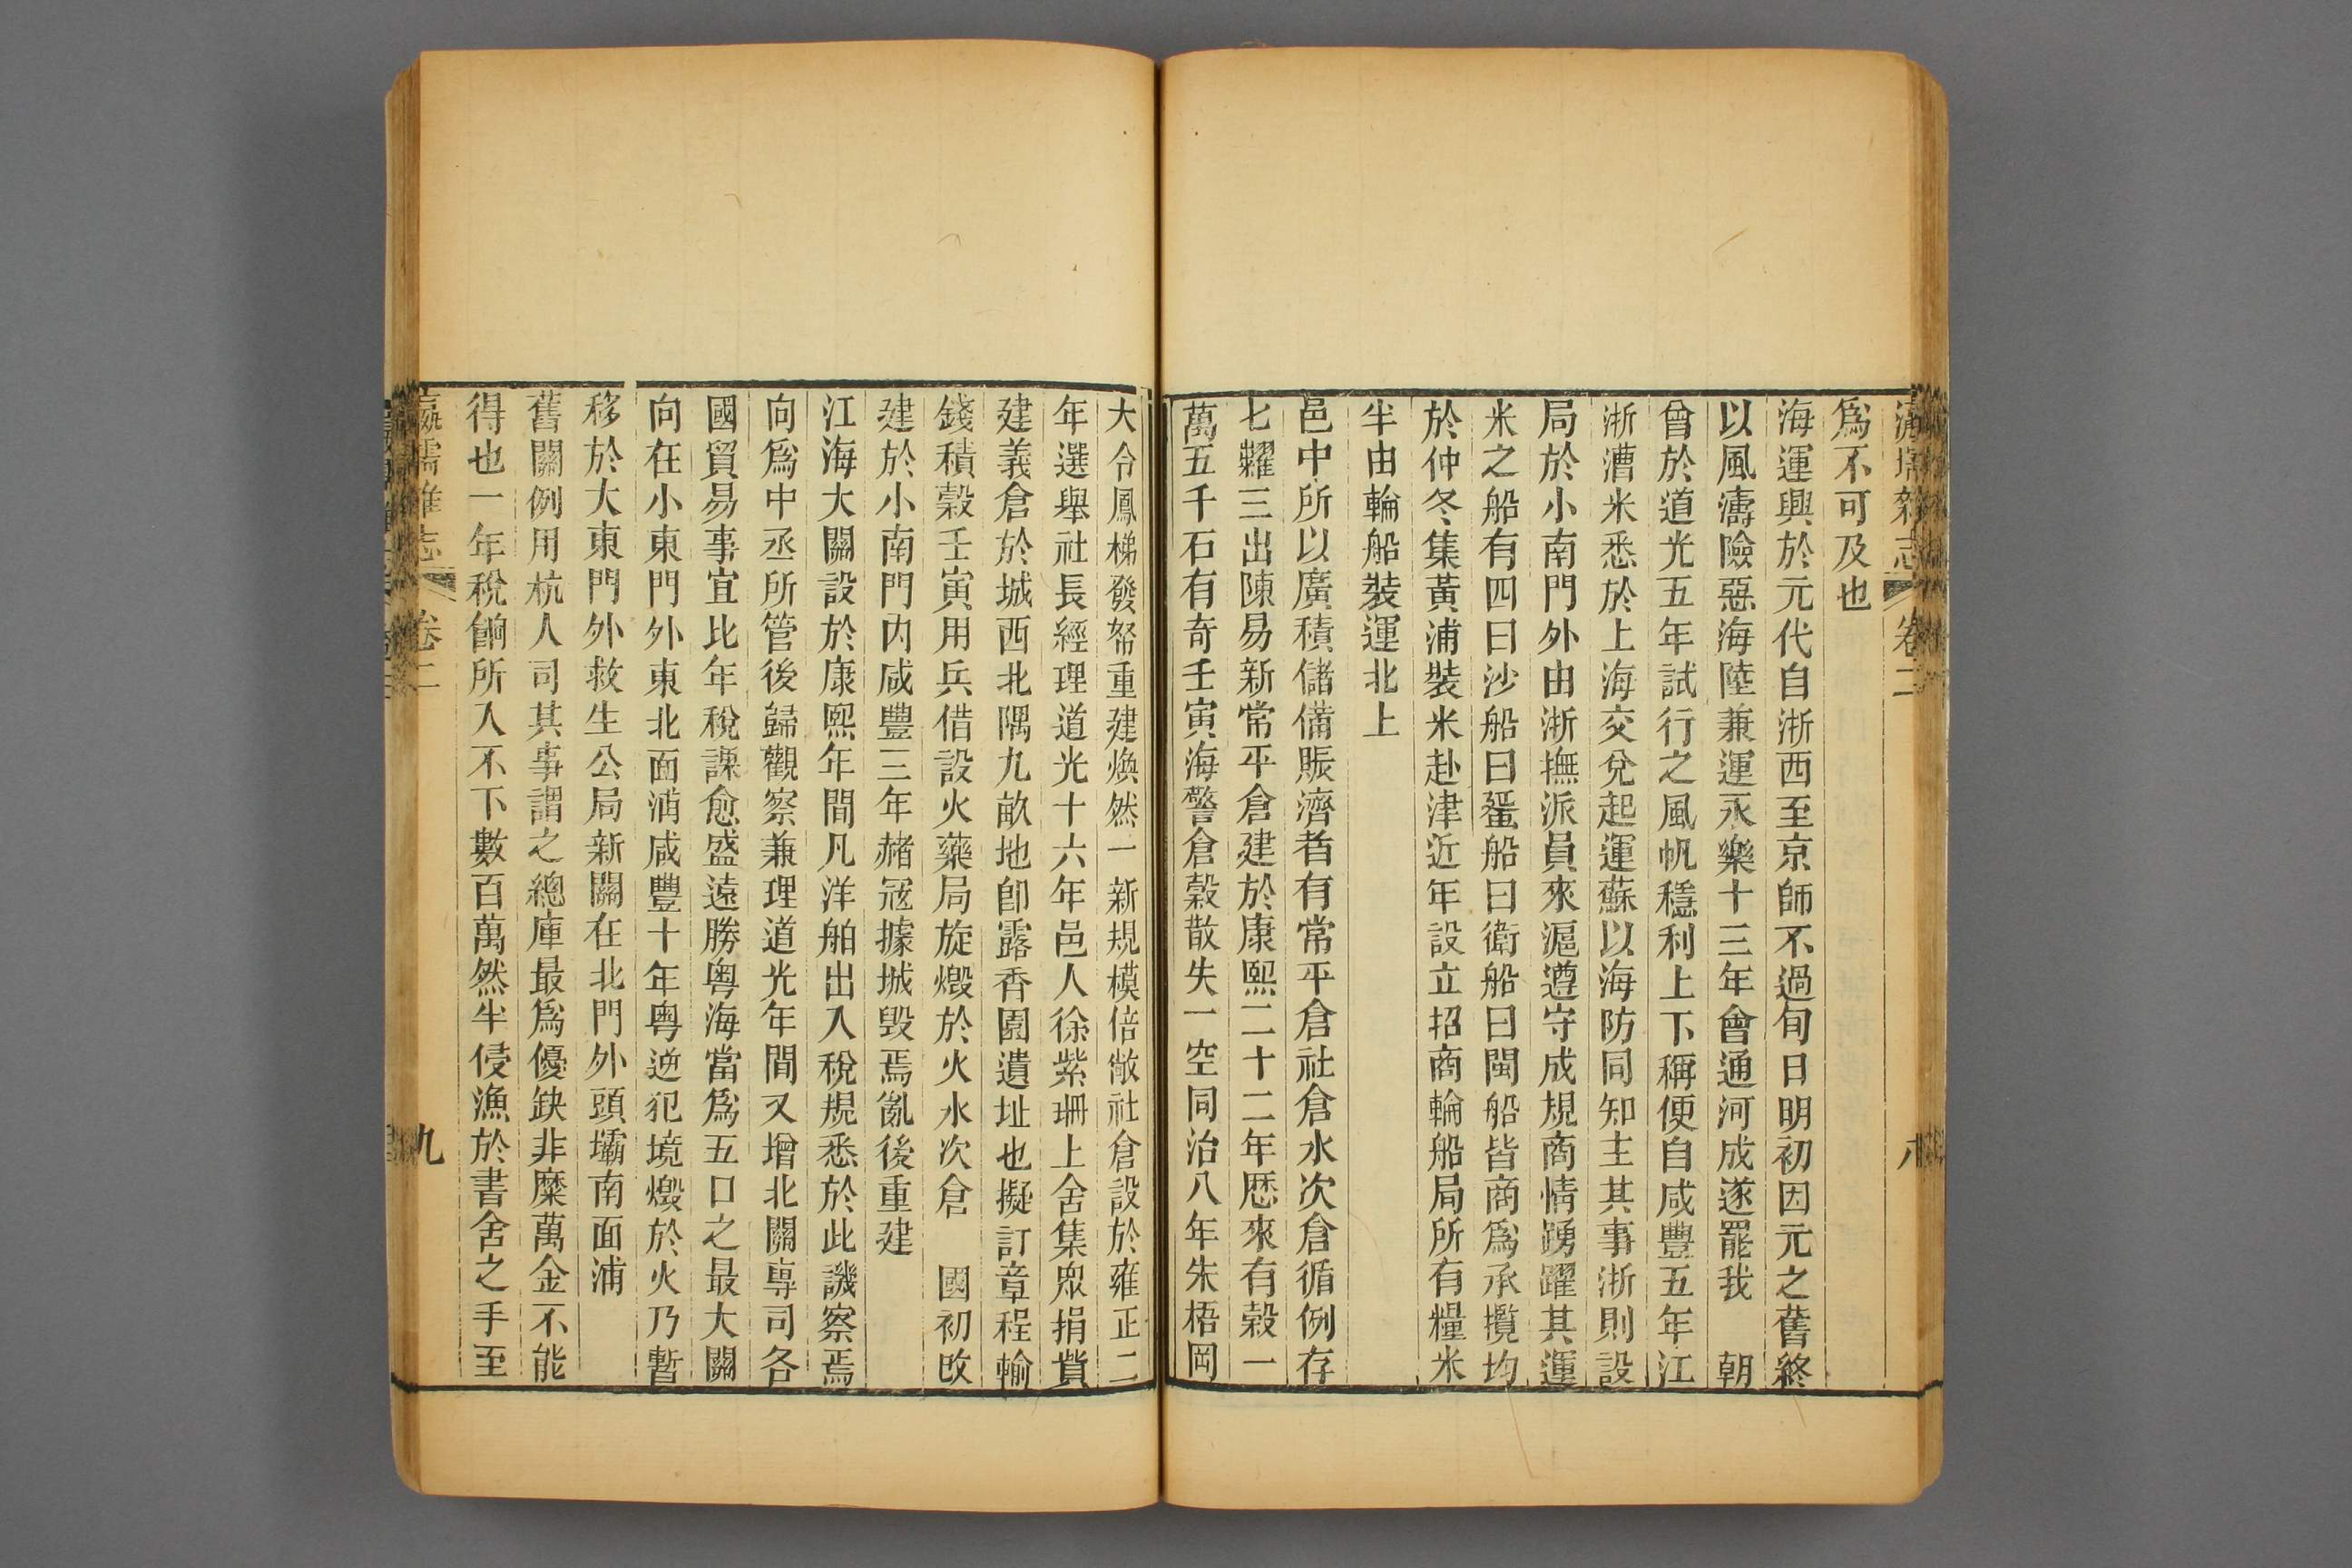 瀛壖雜志 卷二 八
爲不可及也
海運興於元代自浙西至京師不過旬日明初因元之舊終
以風濤險惡海陸兼運永樂十三年會通河成遂罷我 朝
曾於道光五年試行之風帆穩利上下稱便自咸豐五年江
浙漕米悉於上海交兌起運蘇以海防同知主其事浙則設
局於小南門外由浙撫派員來滬遵守成規商情踴躍其運
米之船有四曰沙船曰蜑船曰衛船曰閩船皆商爲承攬均
於仲冬集黃浦裝米赴津近年設立招商輪船局所有糧米
半由輪船裝運北上
邑中所以廣積儲備賑濟者有常平倉社倉水次倉循例存
七糶三出陳易新常平倉建於康熙二十二年歷來有穀一
萬五千石有奇壬寅海警倉穀散失一空同治八年朱梧岡
大令鳳梯發帑重建煥然一新規模倍敞社倉設於雍正二
年選舉社長經理道光十六年邑人徐紫珊上舍集眾捐貲
建義倉於城西北隅九畝地卽露香園遺址也擬訂章程輸
錢積穀壬寅用兵借設火藥局旋燬於火水次倉 國初改
建於小南門內咸豐三年赭寇據城毀焉亂後重建
江海大關設於康熙年間凡洋舶出入稅規悉於此譏察焉
向爲中丞所管後歸觀察兼理道光年間又增北關專司各
國貿易事宜比年稅課愈盛遠勝粵海當爲五口之最大關
向在小東門外東北面浦咸豐十年粵逆犯境燬於火乃暫
移於大東門外救生公局新關在北門外頭壩南面浦
舊關例用杭人司其事謂之總庫最爲優缺非糜萬金不能
得也一年稅餉所入不下數百萬然半侵漁於書舍之手至
瀛壖雜志 卷二 九